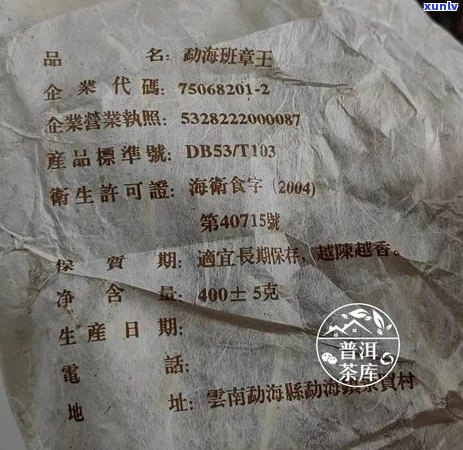 xunlv
品 名: 勐海班章王
企業代碼: 75068201-2
企業營業執照: 5328222000087
産品標準號: DB53/T103
衛生許可證: 海衛食字(2004)
第40715號
保質期: 適宜長期保存，越陳越香。
净含量: 400±5克
生産日期:
電 話:
地 址: 雲南勐海縣勐海鎮 貢村
普洱
茶库